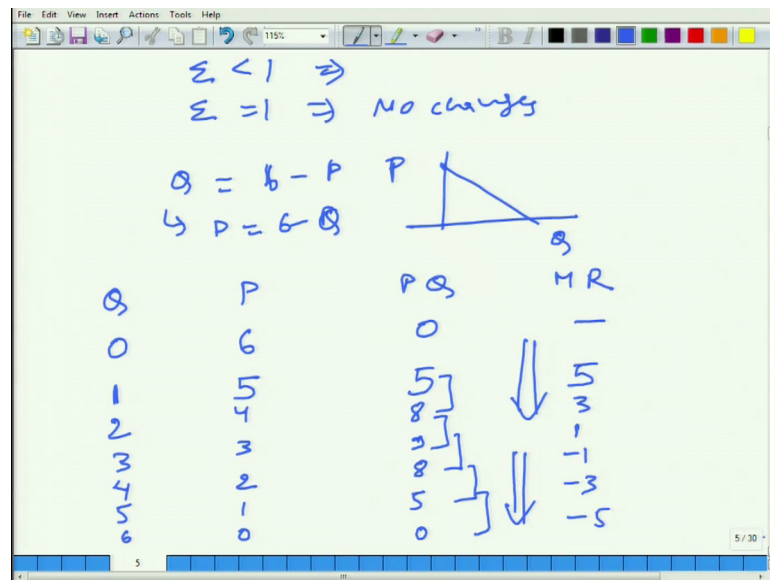 File Edit View Insert Actions Tools Help
115%
B I
Σ < 1 ⇒
Σ = 1 ⇒ No changes
Q = 6 - P P
↳ P = 6 - Q
Q
Q P PQ MR
0 6 0 —
1 5 5 5
2 4 8 3
3 3 9 1
4 2 8 -1
5 1 5 -3
6 0 0 -5
5 / 30
5